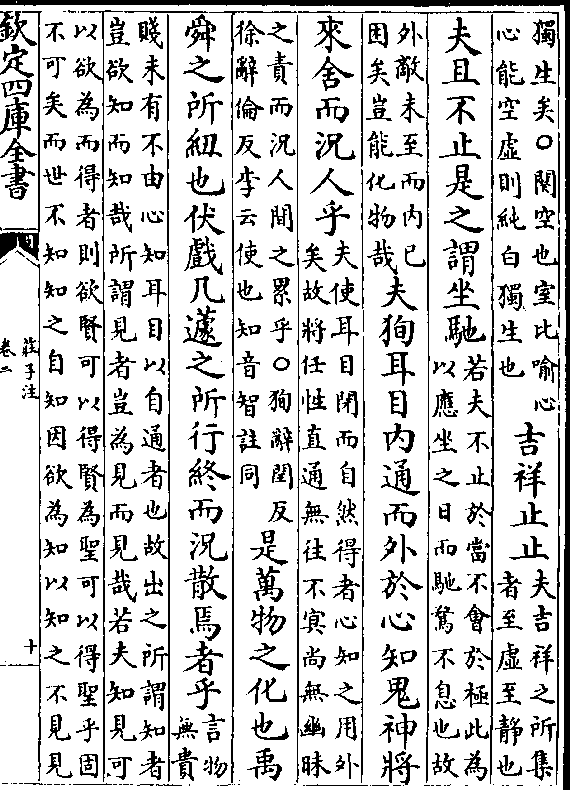 獨生矣○闋空也室比喻心
心能空虛則純白獨生也
吉祥止止
夫吉祥之所集
者至虛至靜也
夫且不止是之謂坐馳
若夫不止於當不會於極此為
以應坐之日而馳騖不息也故
外敵未至而内已
困矣豈能化物哉
夫狥耳目内通而外於心知鬼神將
來舍而況人乎
夫使耳目閉而自然得者心知之用外
矣故將任性直通無往不㝠尚無幽昧
之責而況人間之累乎○狥辭閏反
徐辭倫反李云使也知音智註同
是萬物之化也禹
舜之所紐也伏戲几蘧之所行終而況散焉者乎
言物
無貴
賤未有不由心知耳目以自通者也故出之所謂知者
豈欲知而知哉所謂見者豈為見而見哉若夫知見可
以欲為而得者則欲賢可以得賢為聖可以得聖乎固
不可矣而世不知知之自知因欲為知以知之不見見
欽定四庫全書
莊子注
卷二
十